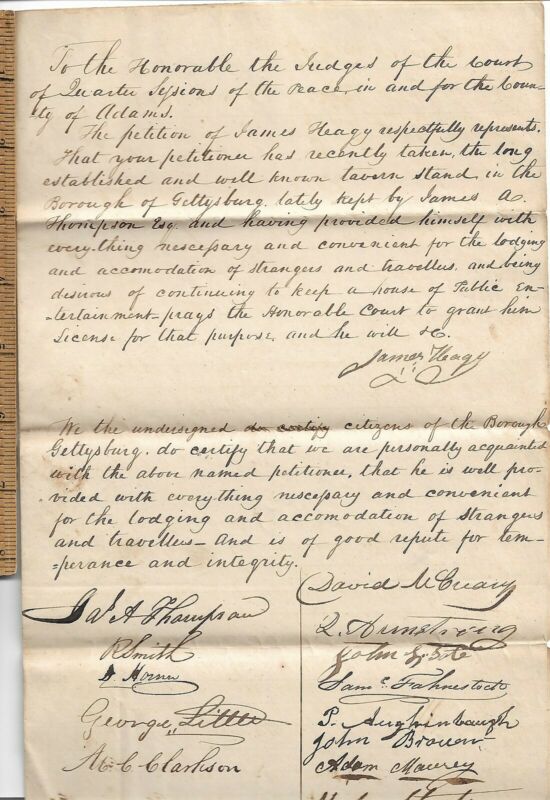 To the Honorable the Judges of the Court
of Quarter Sessions of the Peace, in and for the Coun-
ty of Adams.
The petition of James Heagy respectfully represents.
That your petitioner has recently taken, the long
established and well known tavern stand, in the
Borough of Gettysburg, lately kept by James A.
Thompson Esq. and having provided himself with
every-thing nescessary and convenient for the lodging
and accomodation of strangers and travellers, and being
disirous of continuing to keep a house of Public En-
-tertainment-prays the Honorable Court to grant him
License for that purpose, and he will &c.
James Heagy
We the undersigned do certify citizens of the Borough
Gettysburg. do certify that we are personally acquainted
with the above named petitioner, that he is well pro-
vided with everything nescessary and convenient
for the lodging and accomodation of strangers
and travellers- And is of good repute for tem-
-perance and integrity.
David McCreary
Jas A Thompson
R. Armstrong
R Smith
John
Horner
Saml. Fahnestock
George Little
P. Aughinbaugh
John Brown
M. C. Clarkson
Adam